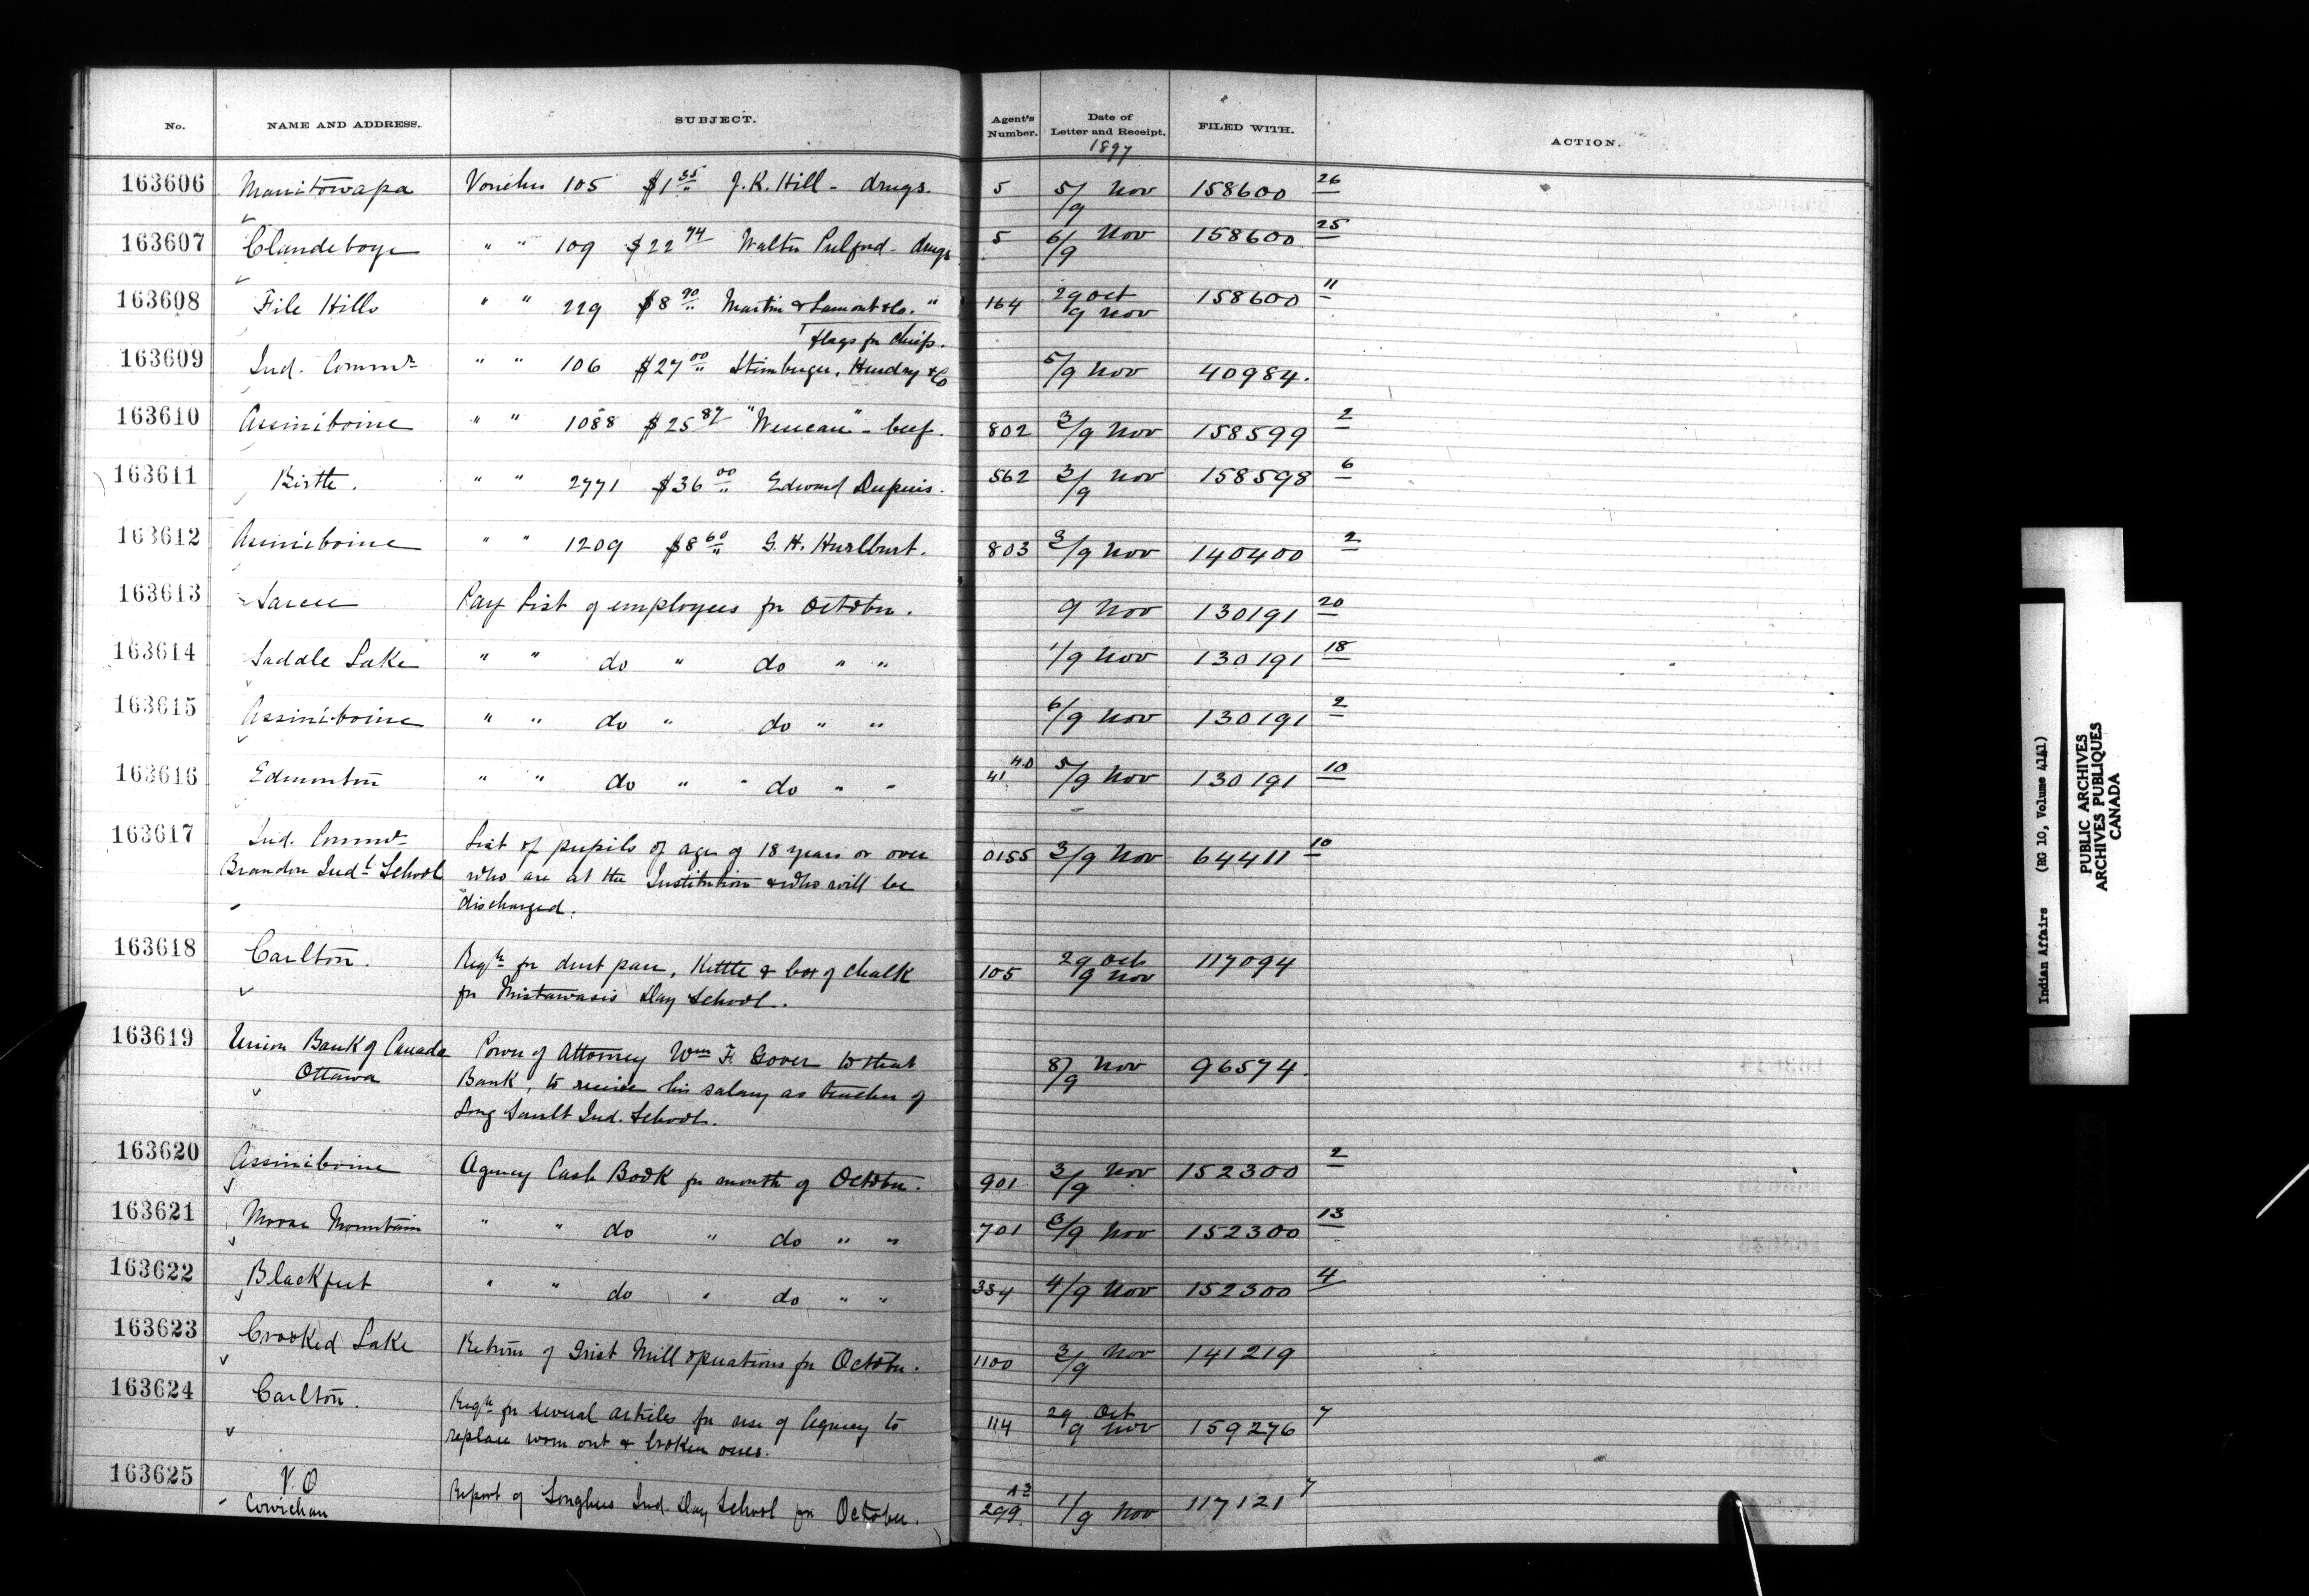 No. NAME AND ADDRESS. SUBJECT. Agent's Number. Date of Letter and Receipt. FILED WITH. ACTION.
1897
163606 Manitowapa Voucher 105 $1 35 J.K. Hill - drugs. 5 5/9 Nov 158600 26
163607 Clandeboye " " 109 $22 74 Walter Pulford - drugs 5 6/9 Nov 158600 25
163608 File Hills " " 229 $8 90 Martin & Lamont & Co. " 164 29 Oct 9 Nov 158600 11
flags for Chiefs.
163609 Ind. Commr " " 106 $27 00 Hendry & Co 5/9 Nov 40984.
163610 Assiniboine " " 1088 $25 87 - beef. 802 3/9 Nov 158599 2
163611 Birtle. " " 2771 $36 00 Edward Dupuis. 562 3/9 Nov 158598 6
163612 Assiniboine " " 1209 $8 60 G.H. Hurlburt. 803 3/9 Nov 140400 2
163613 Sarcee Pay List of employees for October. 9 Nov 130191 20
163614 Saddle Lake " " do " do " " 1/9 Nov 130191 18
163615 Assiniboine " " do " do " " 6/9 Nov 130191 2
163616 Edmonton " " do " " do " " 41 H.O 5/9 Nov 130191 10
163617 Ind. Commr List of pupils of age of 18 years or over 0155 3/9 Nov 64411 10
Brandon Indl School who are at the Institution & who will be
discharged.
163618 Carlton. Reqn for dust pan, Kettle & box of chalk 105 29 Oct 9 Nov 117094
for Mistawasis Day School.
163619 Union Bank of Canada Power of Attorney Wm F. Gover to that 8/9 Nov 96574.
Ottawa Bank, to receive his salary as teacher of
Long Sault Ind. School.
163620 Assiniboine Agency Cash Book for month of October. 901 3/9 Nov 152300 2
163621 Moose Mountain " " do " do " " 701 3/9 Nov 152300 13
163622 Blackfeet " " do " do " " 334 4/9 Nov 152300 4
163623 Crooked Lake Return of Grist Mill operations for October. 1100 3/9 Nov 141219
163624 Carlton. Reqn for several articles for use of Agency to 114 29 Oct 9 Nov 159276 7
replace worn out & broken ones.
163625 V.O Report of Songhees Ind. Day School for October. 299 1/9 Nov 117121 7
Cowichan
Indian Affairs (RG 10, Volume 4141)
PUBLIC ARCHIVES
ARCHIVES PUBLIQUES
CANADA